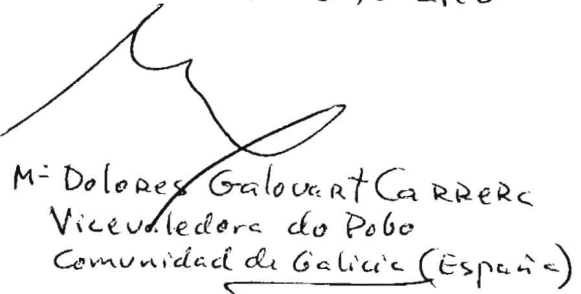 Mª Dolores Galovart Carrera
Vicevaledora do Pobo
Comunidad de Galicia (España)